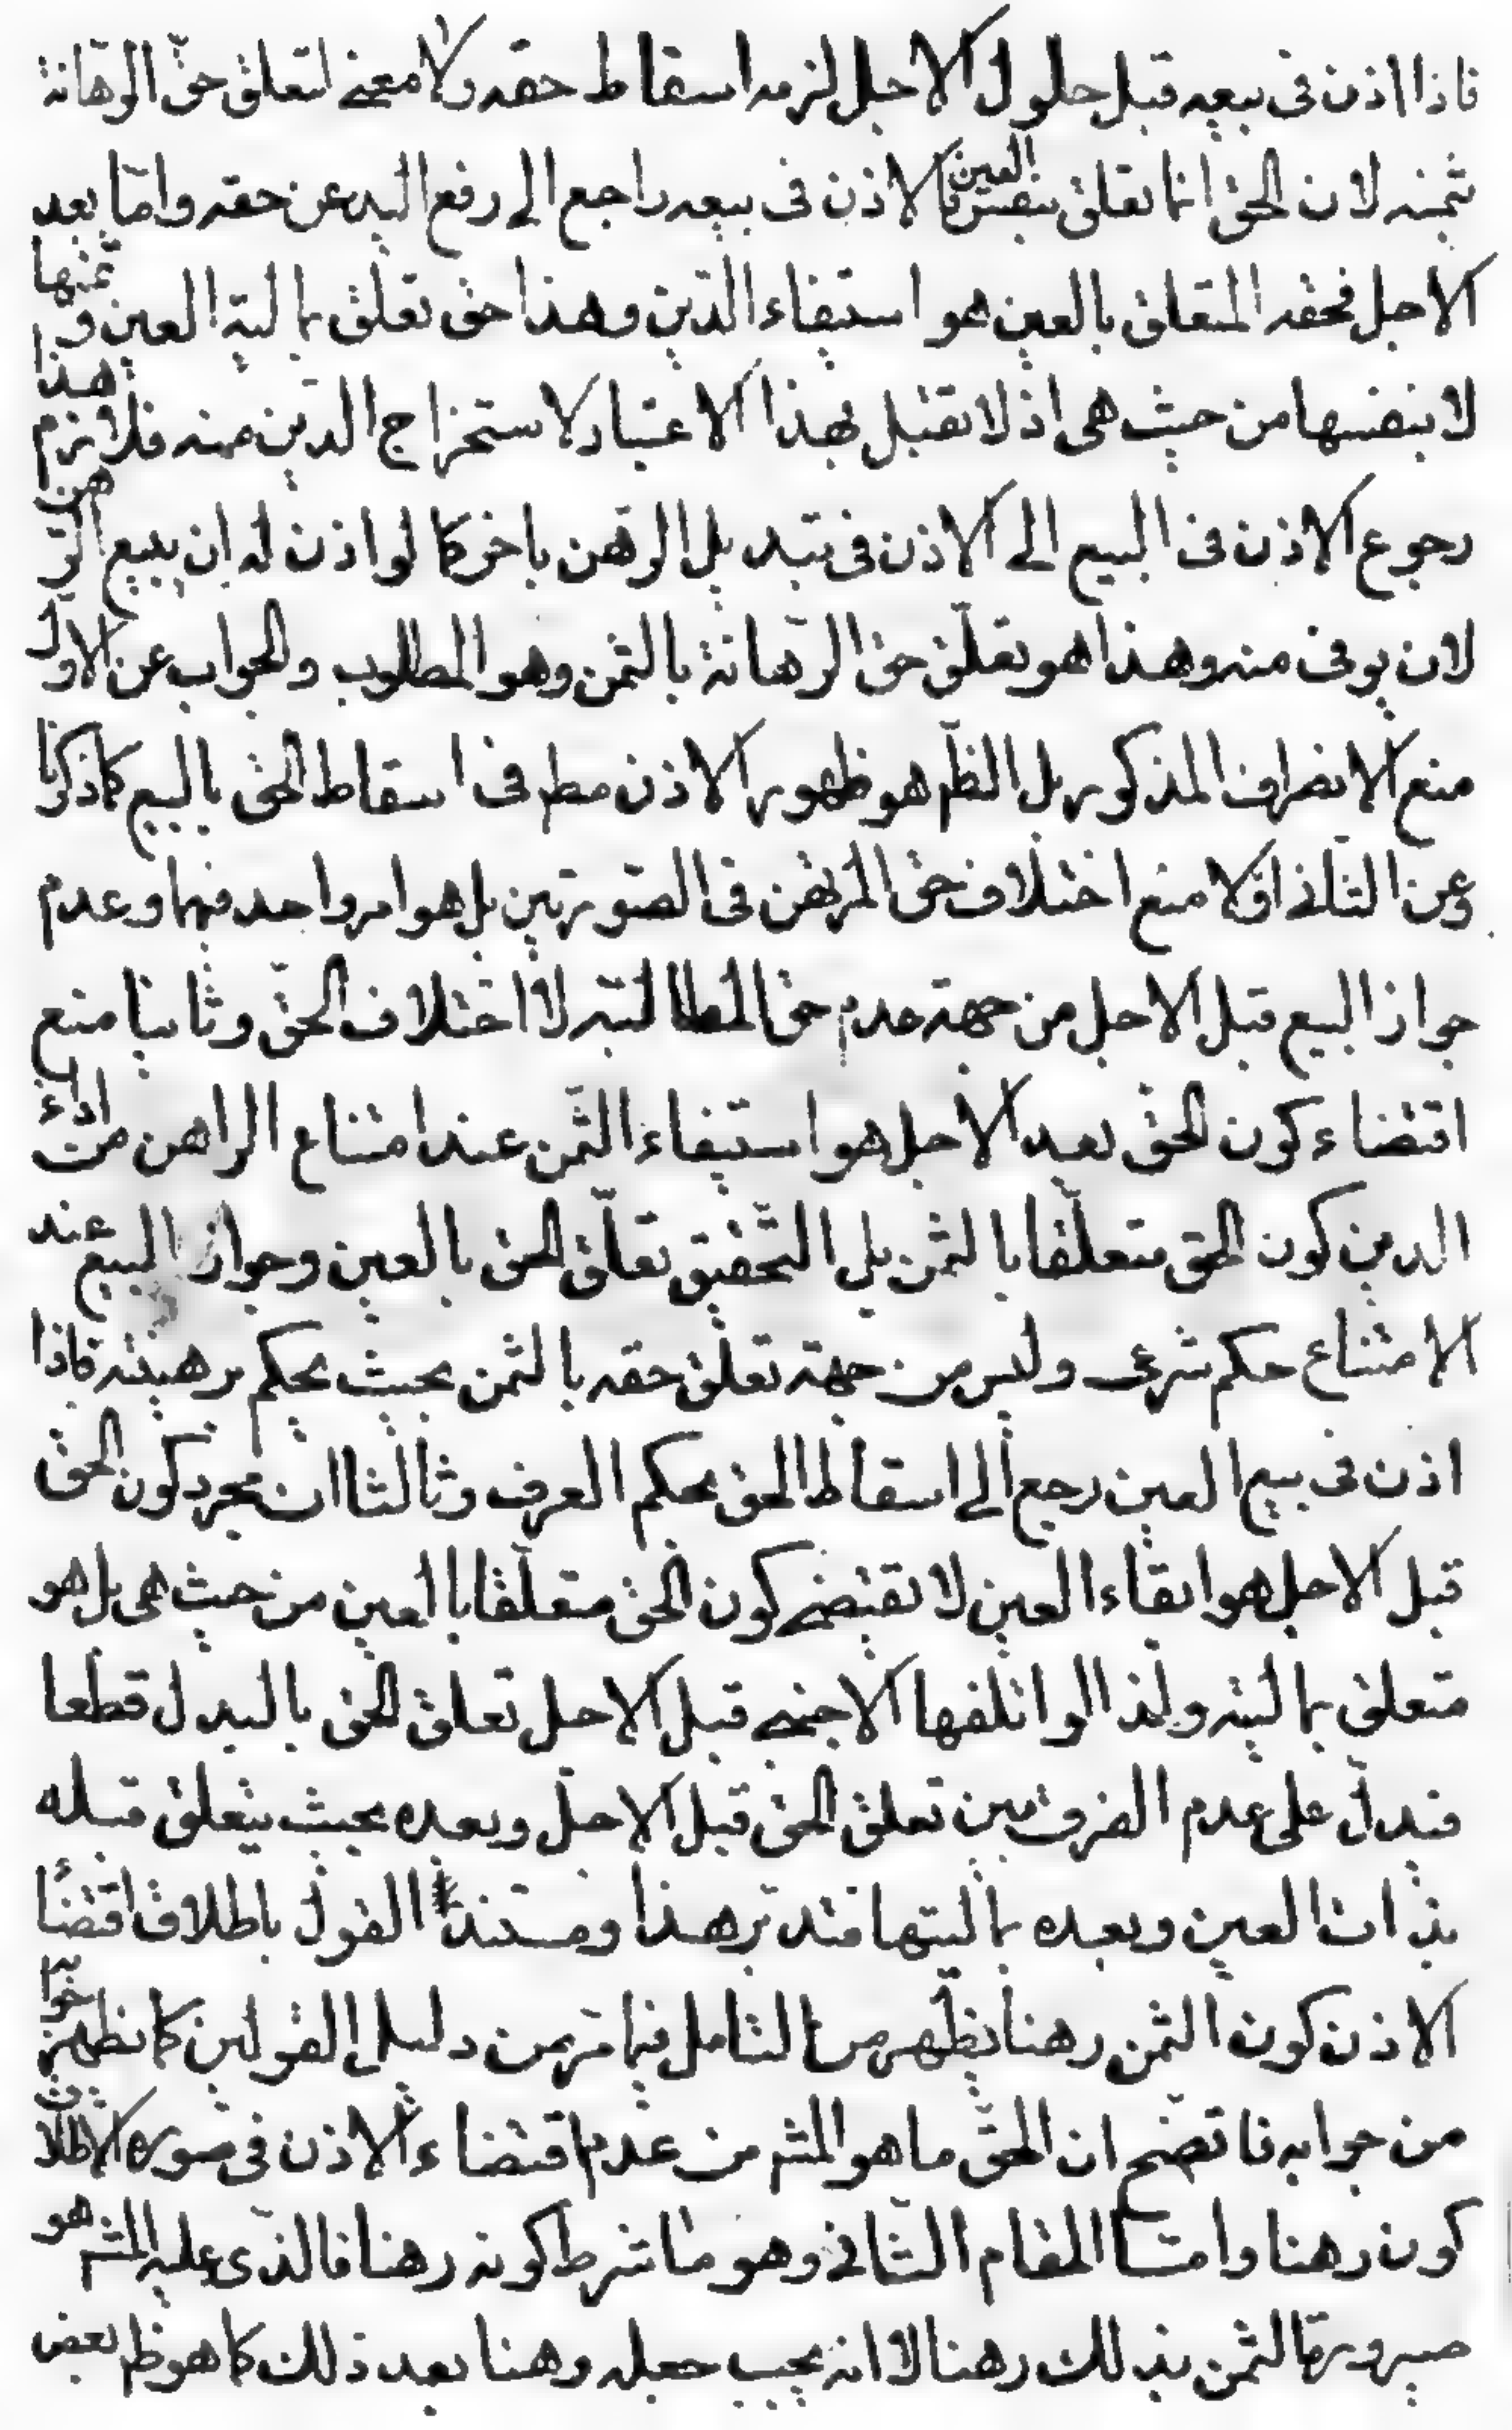 فاذا اذن فى بيعه قبل حلول الاجل لزمه اسقاط حقه ولا معنى لتعلق حق الرهانة
بثمنه لان الحق انما تعلق بنفس العين فالاذن فى بيعه راجع الى رفع اليد عن حقه واما بعد
الاجل فحقه المتعلق بالعين هو استيفاء الدين وهذا حق تعلق بمالية العين و ثمنها
لا بنفسها من حيث هى اذ لا تقبل بهذا الاعتبار لاستخراج الدين منه فلازم هذا
رجوع الاذن فى البيع الى الاذن فى تبديل الرهن باخر كما لو اذن له ان يبيع الرهن
لان يوفى منه وهذا هو تعلّق حق الرّهانة بالثمن وهو المطلوب والجواب عن الاول
منع الانصراف المذكور بل الظّم هو ظهور الاذن مطم فى اسقاط الحق بالبيع كما ذكرنا
وعن الثانى اوّلا منع اختلاف حق المرتهن فى الصّورتين بل هو امر واحد فيهما وعدم
جواز البيع قبل الاجل من جهة عدم حق المطالبة لا اختلاف الحقّ وثانيا منع
اقتضاء كون الحق بعد الاجل هو استيفاء الثّمن عند امتناع الراهن من اداء
الدين كون الحق متعلّقا بالثمن بل التّحقيق تعلّق الحق بالعين وجواز البيع عند
الامتناع حكم شرعى وليس من جهة تعلق حقه بالثمن بحيث يحكم برهينته فاذا
اذن فى بيع العين رجع الى اسقاط الحق بحكم العرف وثالثا ان مجرد كون الحق
قبل الاجل هو ابقاء العين لا تقتضى كون الحق متعلّقا بالعين من حيث هى بل هو
متعلق بماليته ولذا لو اتلفها الاجنبى قبل الاجل تعلق الحق بالبدل قطعا
فتدلّ على عدم الفرق بين تعلق الحق قبل الاجل وبعده بحيث يتعلق قبله
بذات العين وبعده بماليتها فتدبر هذا ومستند القول باطلاق اقتضاء
الاذن كون الثمن رهنا يظهر من التامل فيما مر من دليل القولين كما يظهر جوابه
من جوابه فاتضح ان الحق ما هو المشم من عدم اقتضاء الاذن فى صورة الاطلاق
كون رهنا وامّا المقام الثانى وهو ما شرط كونه رهنا فالذى عليه المشم هو
صيرورة الثمن بذلك رهنا لا انه يجب جعله رهنا بعد ذلك كما هو ظم بعض